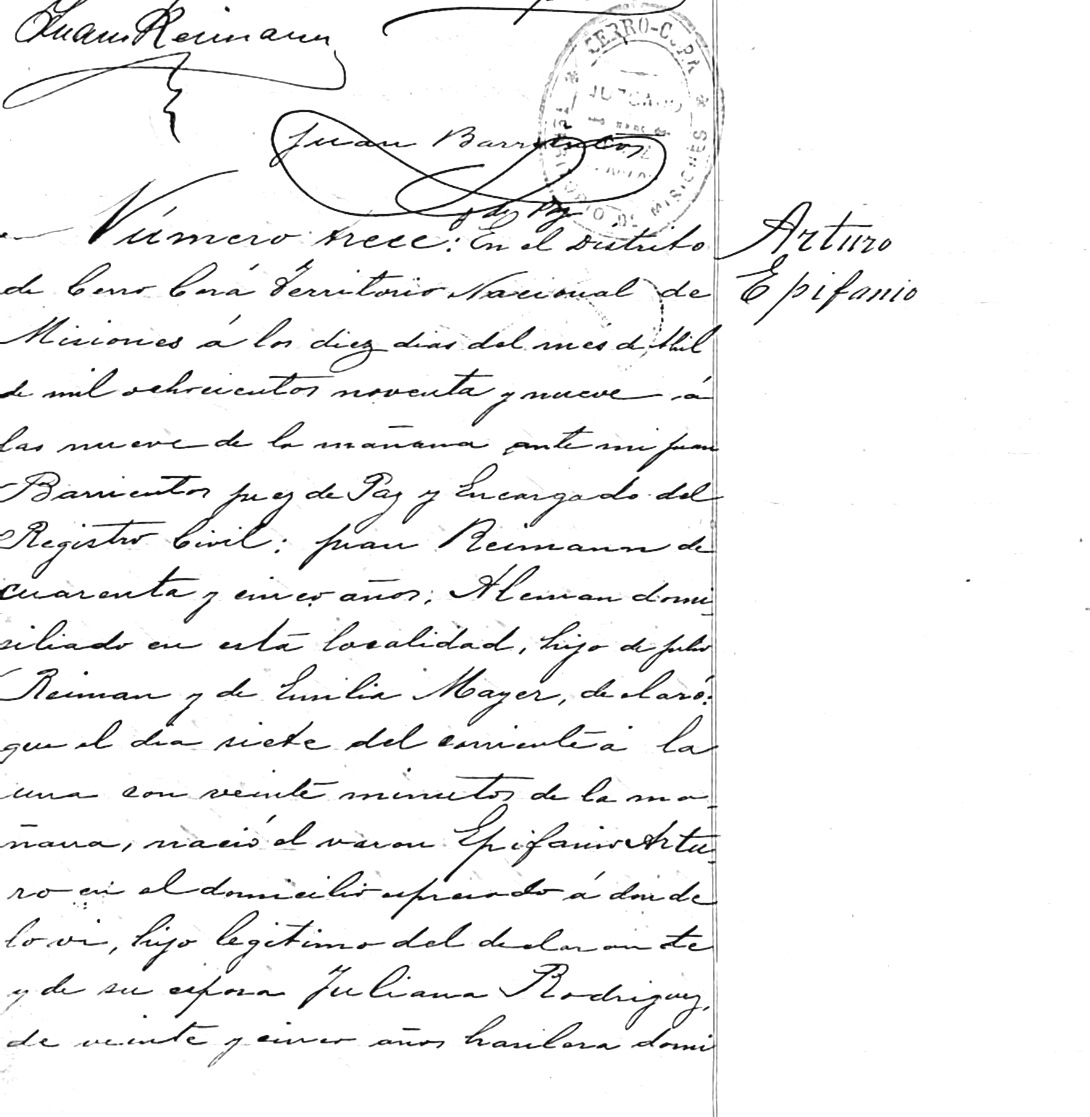 Juan Reimann
CERRO-CORÁ
JUZGADO
MISIONES
Juan Barrientos
J de Paz
Número trece: En el Distrito
de Cerro Corá Territorio Nacional de
Misiones á los diez dias del mes de Abril
de mil ochocientos noventa y nueve á
las nueve de la mañana ante mi Juan
Barrientos Juez de Paz y Encargado del
Registro Civil; Juan Reimann de
cuarenta y cinco años, Aleman domi
siliado en esta localidad, hijo de Julio
Reiman y de Emilia Mayer, declaró:
que el dia siete del corriente á la
una con veinte minutos de la ma-
ñana, nació el varon Epifanio Artu-
ro en el domicilio espresado á donde
lo vi, hijo legitimo del declarante
y de su esposa Juliana Rodriguez,
de veinte y cinco años brasilera domi
Arturo
Epifanio